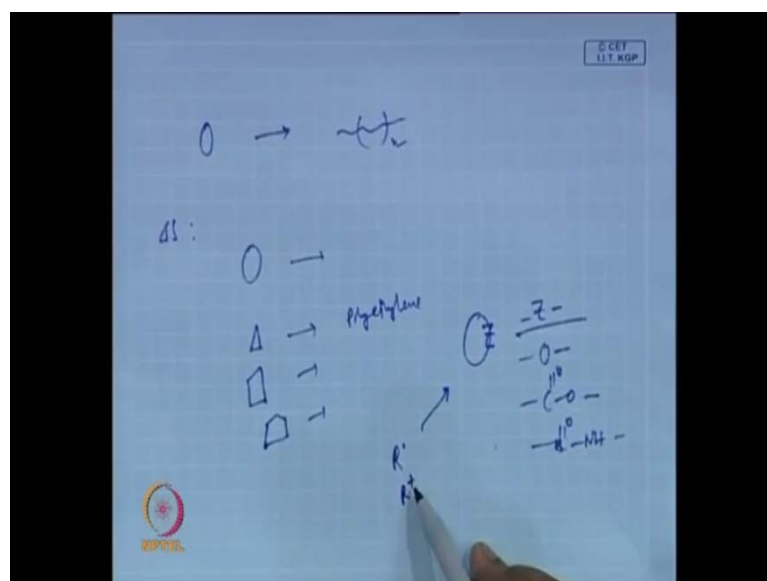 © CET
I.I.T. KGP
ΔS :
Polyethylene
Z
-Z-
-O-
-C-O-
O
-C-NH-
O
R•
R+
NPTEL